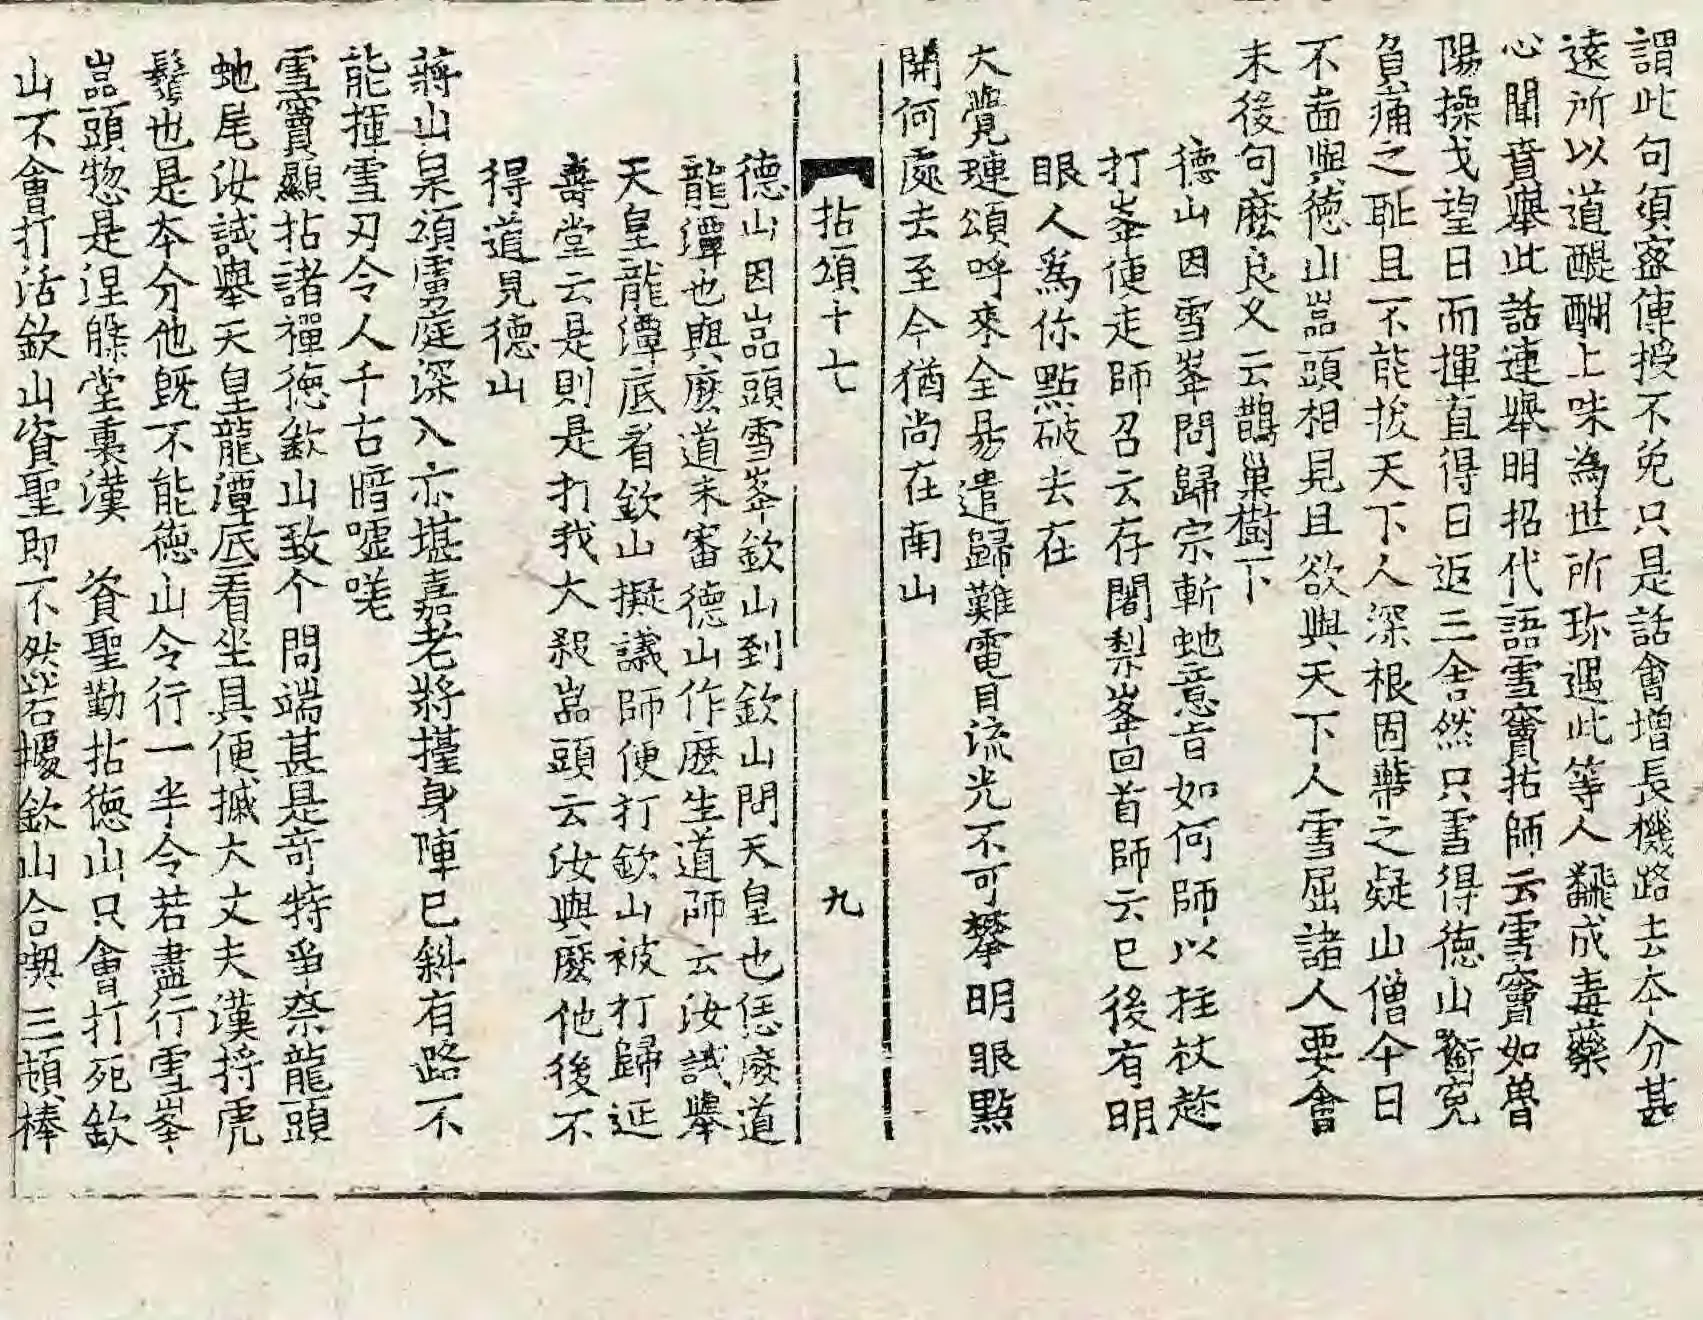 謂此句須密傳授不免只是話會增長機路去本分甚
遠所以道醍醐上味為世所珎遇此等人飜成毒藥
心聞賁舉此話連舉明招代語雪竇拈師云雪竇如魯
陽操戈望日而揮直得日返三舍然只雪得德山鼇宛
負痛之耻且不能拔天下人深根固蔕之疑山僧今日
不啚與德山嵓頭相見且欲與天下人雪屈諸人要會
末後句麽良久云鵲巢樹下
德山因雪峯問歸宗斬虵意旨如何師以拄杖趂
打峯便走師召云存闍梨峯回首師云已後有明
眼人爲你點破去在
大覺璉頌呼來全易遣歸難電目流光不可攀明眼點
開何處去至今猶尚在南山
拈頌十七 九
德山因嵓頭雪峯欽山到欽山問天皇也恁麽道
龍潭也與麽道未審德山作麽生道師云汝試舉
天皇龍潭底看欽山擬議師便打欽山被打歸延
壽堂云是則是打我大殺嵓頭云汝與麽他後不
得道見德山
蔣山泉頌虜庭深入亦堪嘉老將擡身陣已斜有路不
能揮雪刃令人千古暗噓嗟
雪竇顯拈諸禪德欽山致个問端甚是竒特爭柰龍頭
虵尾汝試舉天皇龍潭底看坐具便摵大丈夫漢捋虎
鬚也是本分他旣不能德山令行一半令若盡行雪峯
嵓頭惣是涅槃堂裏漢 資聖勤拈德山只會打死欽
山不會打活欽山資聖即不然若據欽山合喫三頓棒